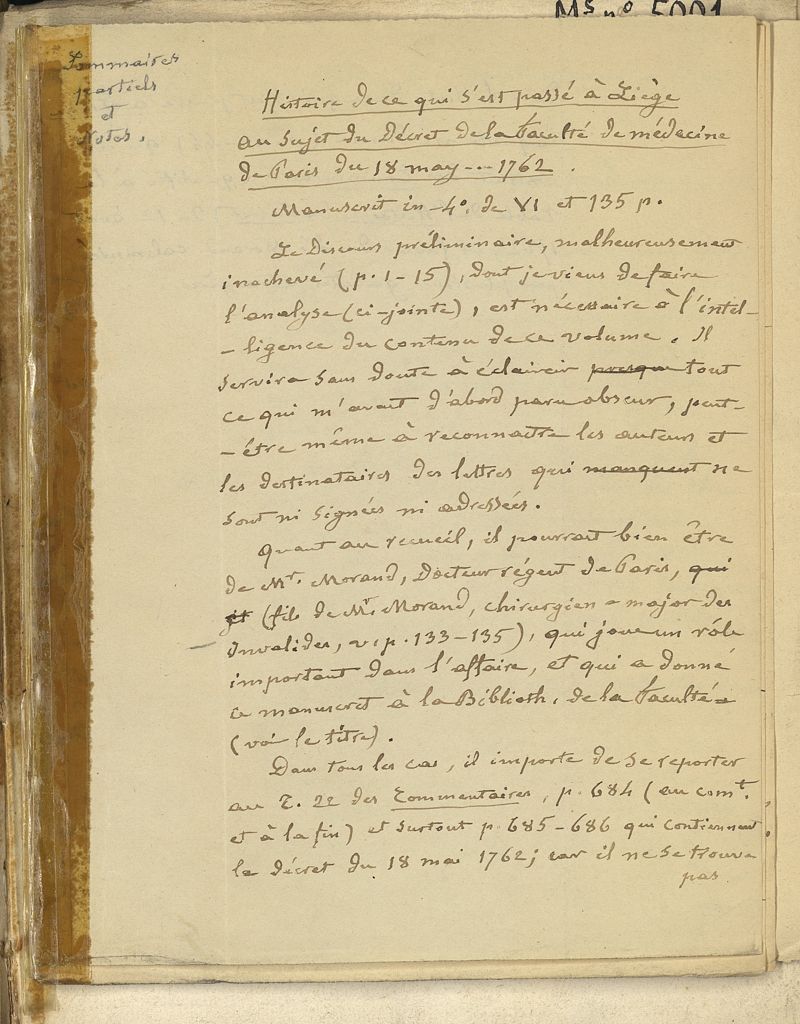 Ms no 5001
Sommaires
partiels
et
Notes.
Histoire de ce qui s'est passé à Liège
au sujet du Décret de la Faculté de médecine
de Paris du 18 may --- 1762.
Manuscrit in-4o. de VI et 135 p.
Le Discours préliminaire, malheureusement
inachevé (p. 1-15), dont je viens de faire
l'analyse (ci-jointe), est nécessaire à l'intel-
-ligence du contenu de ce volume. Il
servira sans doute à éclaircir presque tout
ce qui m'avait d'abord paru obscur, peut-
-être même à reconnaitre les auteurs et
les destinataires des lettres qui manquent ne
sont ni signées ni adressées.
Quant au recueil, il pourrait bien être
de Mr. Morand, Docteur régent de Paris, qui
(fils de Mr. Morand, chirurgien-major des
Invalides, v. p. 133-135), qui joue un rôle
important dans l'affaire, et qui a donné
ce manuscrit à la Biblioth. de la Faculté
(voir le titre).
Dans tous les cas, il importe de se reporter
au T. 22 des Commentaires, p. 684 (au comt.
et à la fin) et surtout p. 685-686 qui contiennent
le décret du 18 mai 1762; car il ne se trouve
pas